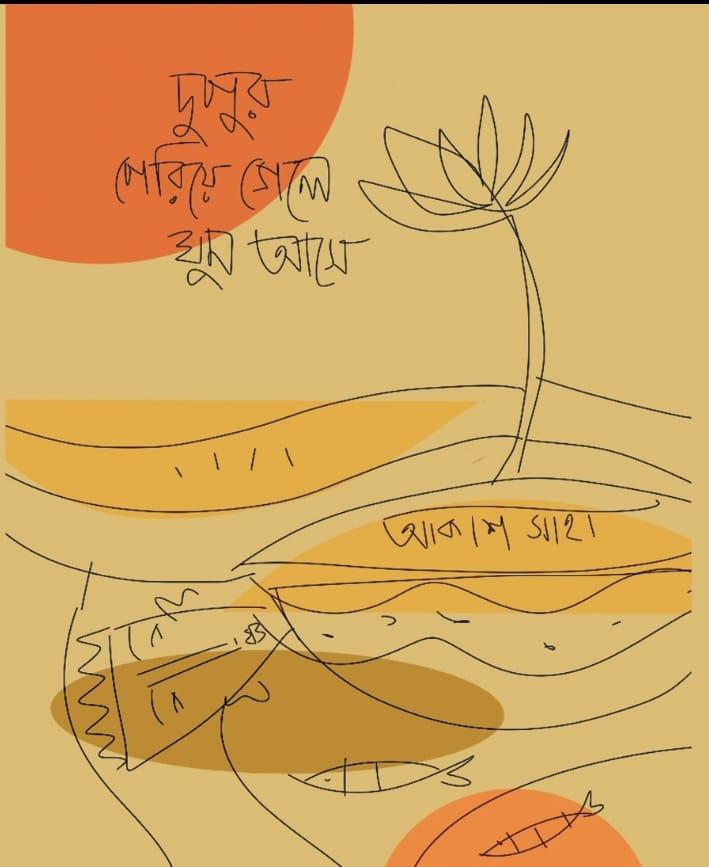 দুপুর
পেরিয়ে গেলে
ঘুম আসে
আকাশ সাহা